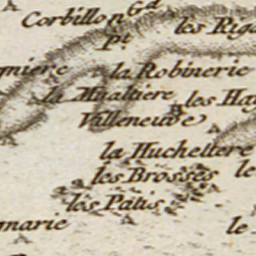 Corbillon Gd
Pt
les Riga
gniere
la Robinerie
la Mualtiere
les Ha
Villeneuve
la Huchettere
les Brosses
le
les Patis
marie
le